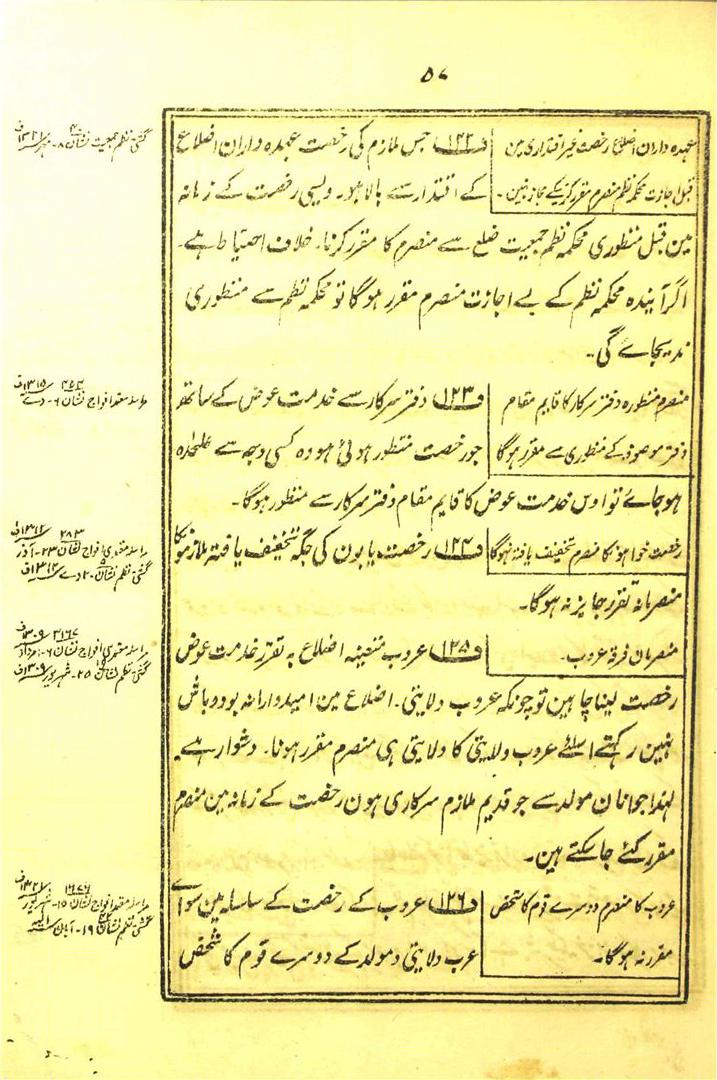 ۵۷
عہدہ داران اضلاع رخصت غیر اقتداری مین
قبل اجازت محکمہ نظم منصرم مقرر کرنیکے مجاز نہین۔
دفعہ ۱۲۲ جس ملازم کی رخصت عہدہ داران اضلاع
کے اقتدار سے بالا ہو۔ ویسی رخصت کے زمانہ
مین قبل منظوری محکمہ نظم جمعیت ضلع سے منصرم کا مقرر کرنا۔ خلاف احتیاط ہے۔
اگر آیندہ محکمہ نظم کے بے اجازت منصرم مقرر ہوگا تو محکمہ نظم سے منظوری
ندیجاے گی۔
منصرم منظورہ دفتر سرکار کا قایم مقام
دفتر موصوف کے منظوری سے مقرر ہوگا
دفعہ ۱۲۳ دفتر سرکار سے خدمت عوض کے ساتھ
جو رخصت منظور ہوئی ہو وہ کسی وجہ سے علحدہ
ہو جاے تو اوس خدمت عوض کا قایم مقام دفتر سرکار سے منظور ہوگا۔
رخصت خواہونکا منصرم تخفیف یافتہ نہوگا
دفعہ ۱۲۴ رخصت یابون کی جگہ تخفیف یافتہ ملازمونکا
منصرمانہ تقرر جایز نہ ہوگا۔
منصرمان فرقہ عروب۔
دفعہ ۱۲۵ عروب متعینہ اضلاع بہ تقرر خدمت عوض
رخصت لینا چاہین تو چونکہ عروب ولایتی۔ اضلاع مین امیدوارانہ بود و باش
نہین رکہتے اسلئے عروب ولایتی کا ولایتی ہی منصرم مقرر ہونا۔ دشوار ہے۔
لہذا جوانان مولد سے جو قدیم ملازم سرکاری ہون رخصت کے زمانہ مین منصرم
مقرر کئے جا سکتے ہین۔
عروب کا منصرم دوسرے قوم کا شخص
مقرر نہ ہوگا۔
دفعہ ۱۲۶ عروب کے رخصت کے سلسلہ مین سواے
عرب ولایتی و مولد کے دوسرے قوم کا شخص
گشتی نظم جمعیت نشان
مراسلہ معتمد افواج نشان
مراسلہ معتمدی افواج نشان
گشتی نظم نشان
مراسلہ معتمدی افواج نشان
گشتی نظم نشان
مراسلہ معتمد افواج نشان
گشتی نظم نشان